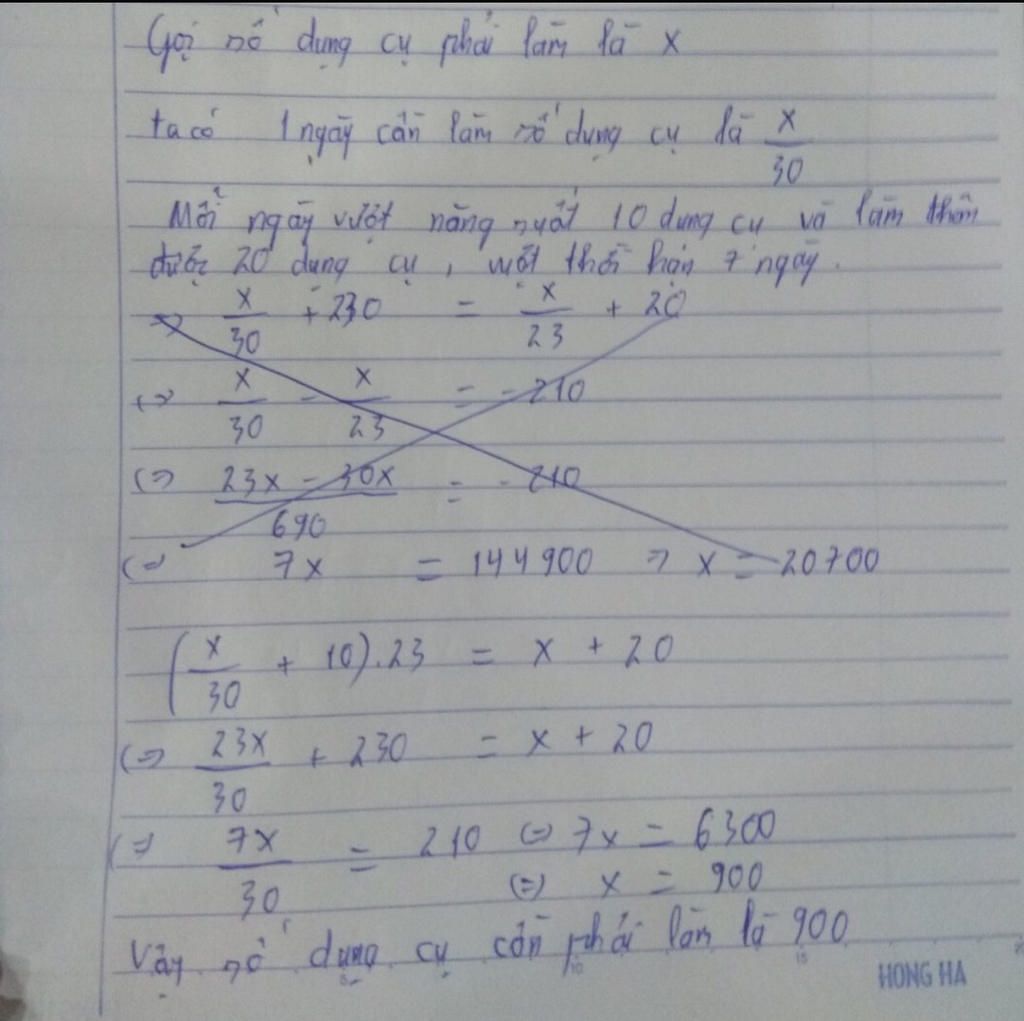 Gọi số dụng cụ phải làm là x
ta có 1 ngày cần làm số dụng cụ là x/30
Mỗi ngày vượt năng suất 10 dụng cụ và làm thêm
được 20 dụng cụ, vượt thời hạn 7 ngày.
=> x/30 + 230 = x/23 + 20
<=> x/30 - x/23 = -210
<=> (23x - 30x)/690 = -210
<=> 7x = 144900 => x = 20700
(x/30 + 10).23 = x + 20
<=> 23x/30 + 230 = x + 20
<=> 7x/30 = 210 <=> 7x = 6300
<=> x = 900
Vậy số dụng cụ cần phải làm là 900
HONG HA